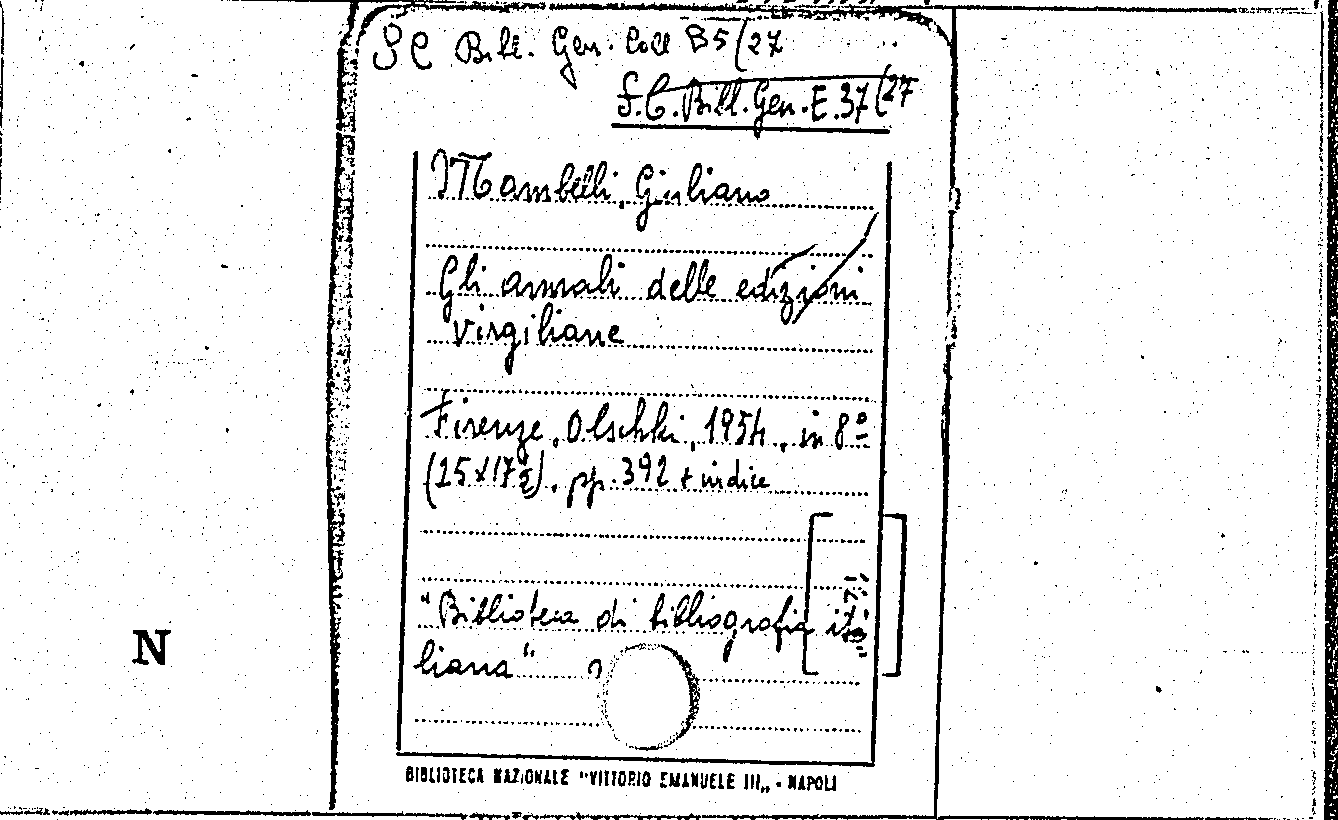 SC Bibl. Gen. Coll B5(27
S.C. Bibl. Gen. E. 37(27
Mambelli, Giuliano
Gli annali delle edizioni
virgiliane
Firenze, Olschki, 1954, in 8º
(25x17½), pp. 392 + indice
"Biblioteca di bibliografia ita
liana"
N
BIBLIOTECA NAZIONALE "VITTORIO EMANUELE III„ - NAPOLI